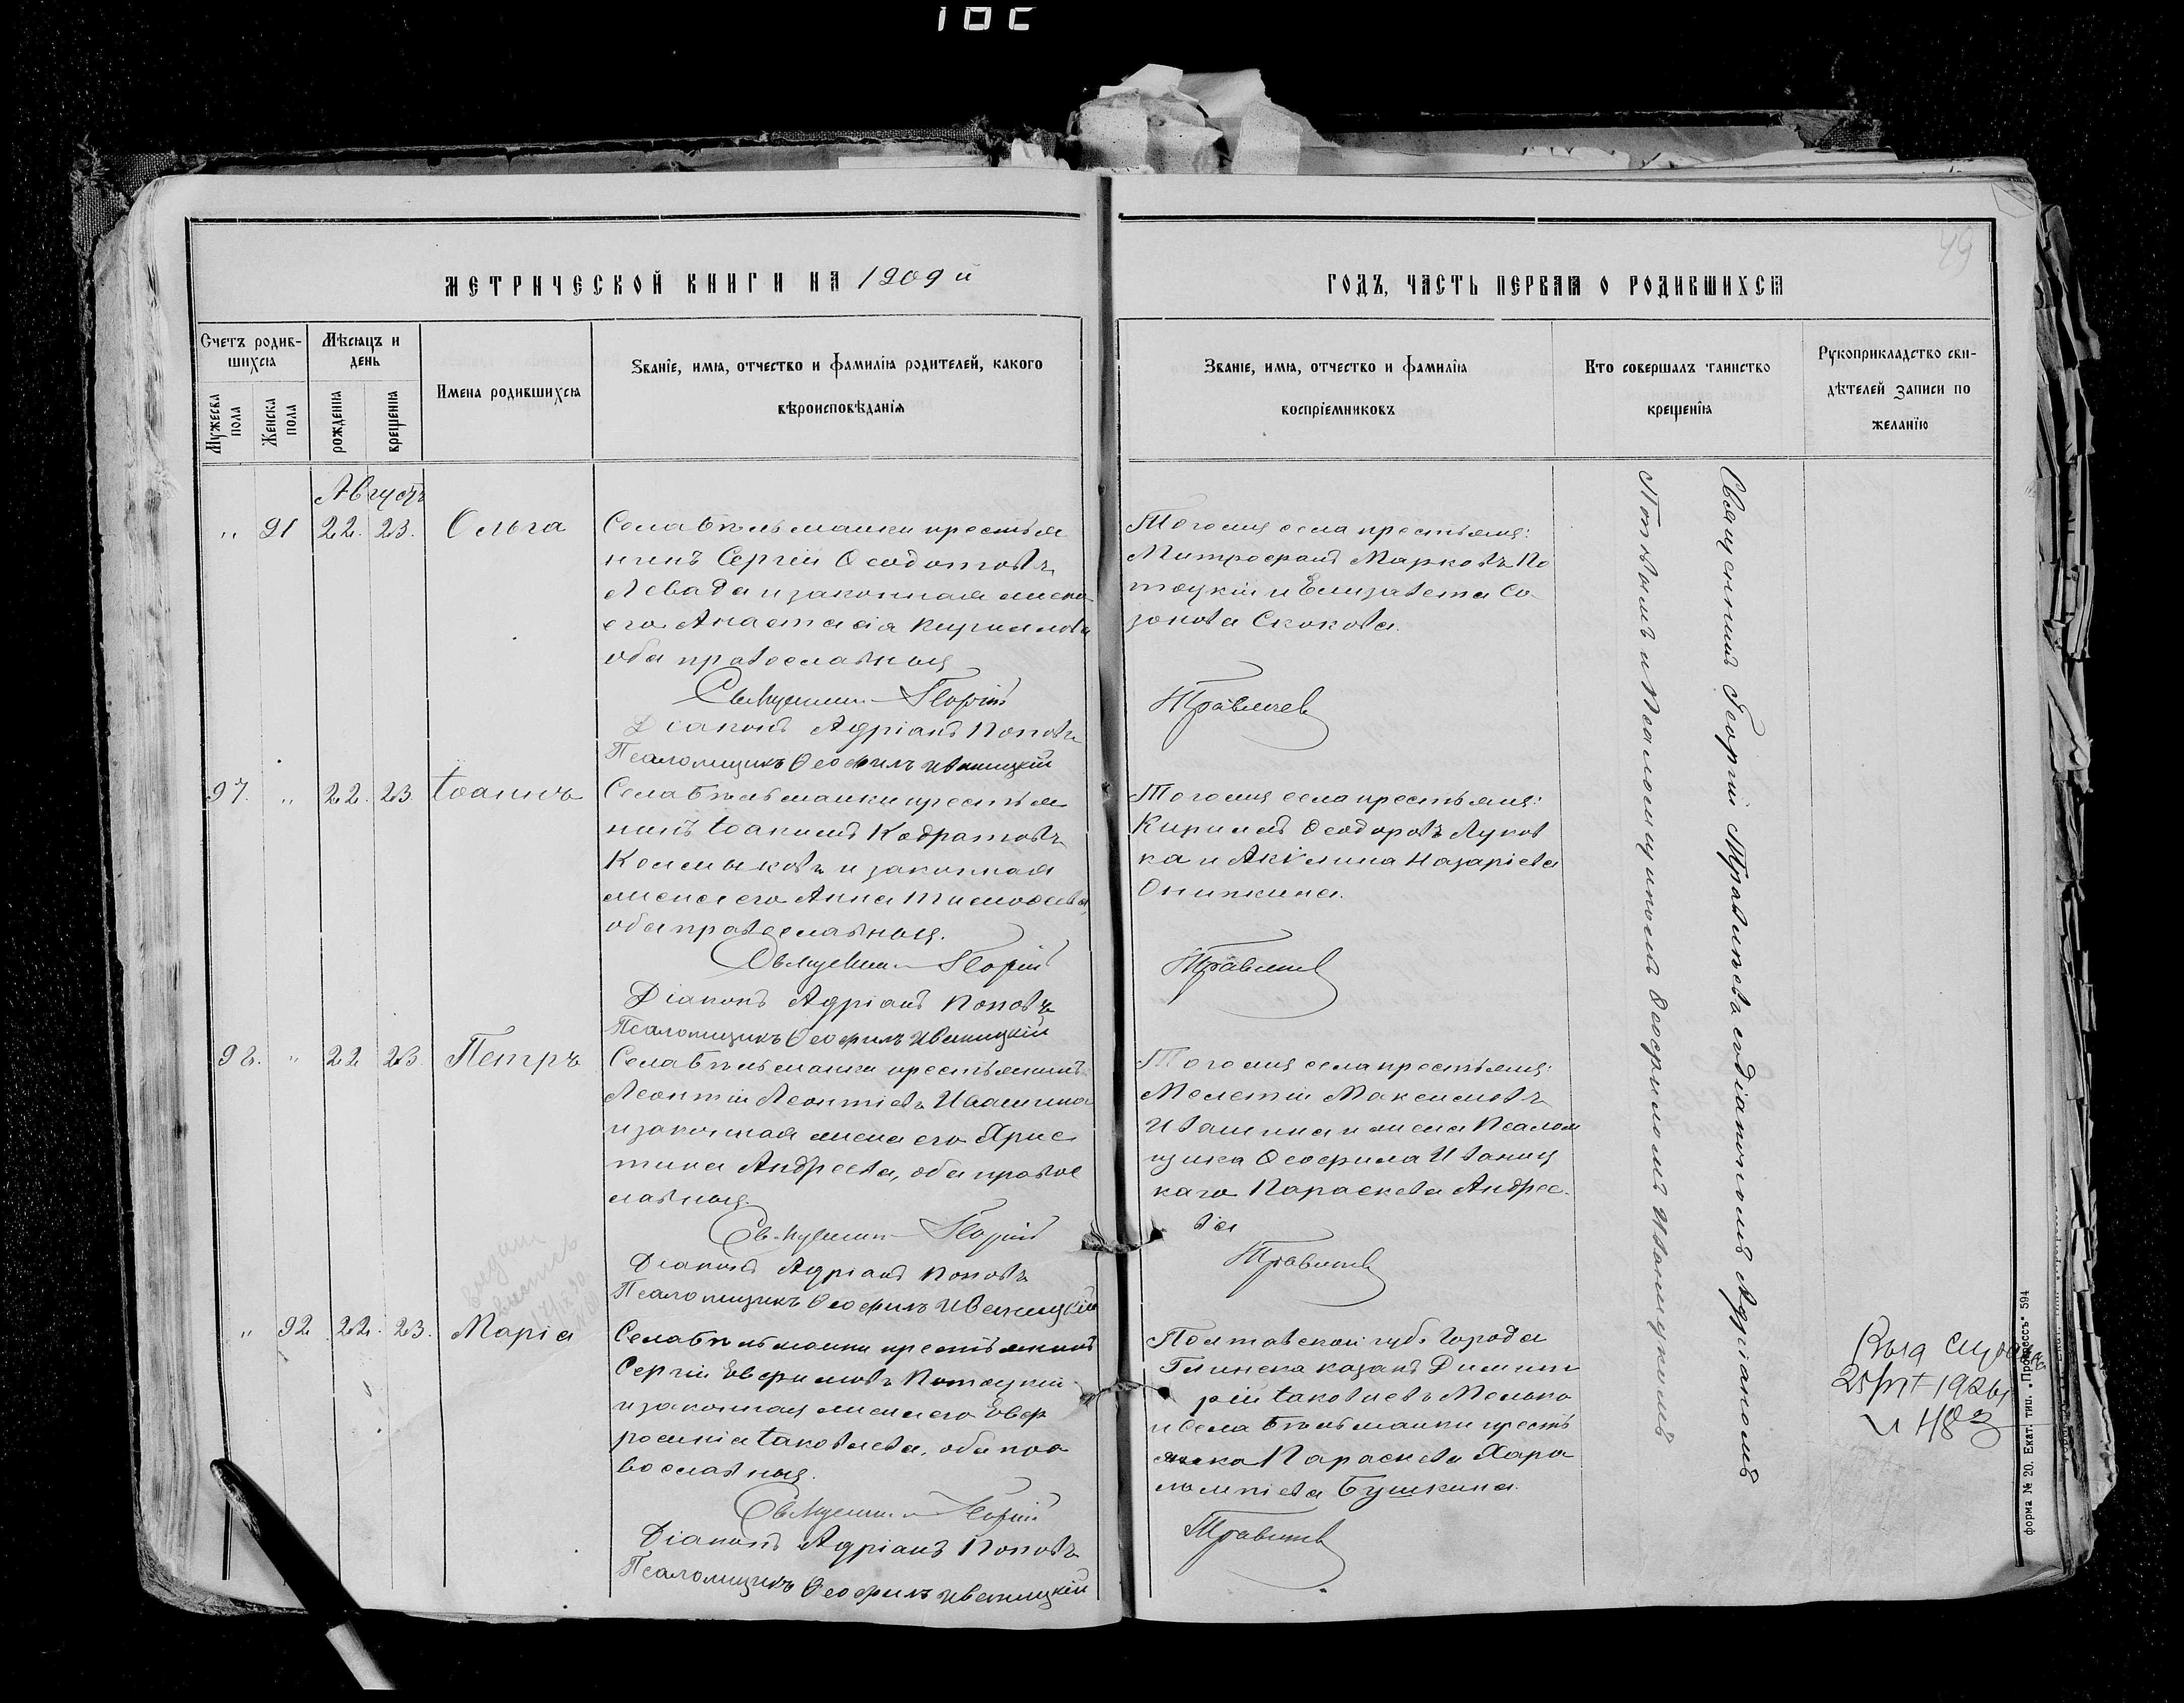 МЕТРИЧЕСКОЙ КНИГИ НА 1909 й
ГОДЪ, ЧАСТЬ ПЕРВАЯ О РОДИВШИХСЯ
49
Счетъ родив-
шихся
Мѣсяцъ и
день
Мужеска пола
Женска пола
рожденія
крещенія
Имена родившихся
Званіе, имя, отчество и фамилія родителей, какого
вѣроисповѣданія
Званіе, имя, отчество и фамилія
воспріемниковъ
Кто совершалъ таинство
крещенія
Рукоприкладство сви-
дѣтелей записи по
желанію
Августъ
„ 91 22. 23. Ольга
Села Бѣльманки крестья
нинъ Сергій Ѳеодотовъ
Левада и законная жена
его Анастасія Кириллова
оба православныя
Священникъ Георгій
Діаконъ Адріанъ Поповъ
Псаломщикъ Ѳеофилъ Иваницкій
Того жъ села крестьяне:
Митрофанъ Марковъ По
тоцкій и Елизавета Со
зонова Скокова.
Травлѣевъ
97. „ 22. 23 Іоаннъ
Села Бѣльманки крестья
нинъ Іоакимъ Кодратовъ
Колмыковъ и законная
жена его Анна Тимоѳеева,
оба православныя.
Священникъ Георгій
Діаконъ Адріанъ Поповъ
Псаломщикъ Ѳеофилъ Иваницкій
Того жъ села крестьяне:
Кириллъ Ѳеодоровъ Луков
ка и Акилина Назаріева
Онипкина.
98. „ 22 23. Петръ
Села Бѣльманки крестьянинъ
Леонтій Леонтіевъ Ивашина
и законная жена его Хрис
тина Андреева, оба право
славныя.
Священникъ Георгій
Діаконъ Адріанъ Поповъ
Псаломщикъ Ѳеофилъ Иваницкій
Того жъ села крестьяне:
Мелетій Максимовъ
Ивашина и жена Псалом
щика Ѳеофила Иваниц
каго Параскева Андрее
ва
„ 92 22. 23. Марія
Села Бѣльманки крестьянинъ
Сергій Евфимовъ Потоцкій
и законная жена его Евф
росинія Іаковлева, оба пра
вославныя.
Священникъ Георгій
Діаконъ Адріанъ Поповъ
Псаломщикъ Ѳеофилъ Иваницкій
Полтавской губ. города
Глинска казакъ Димит
рій Іаковлевъ Мелько
и Села Бѣльманки кресть
янка Параскева Хара
лампіева Бушкина.
Священникъ Георгій Травлѣевъ съ діакономъ Адріаномъ
Поповымъ и Псаломщикомъ Ѳеофиломъ Иваницкимъ
форма № 20. Екат. тип. „Прогрессъ“ 594